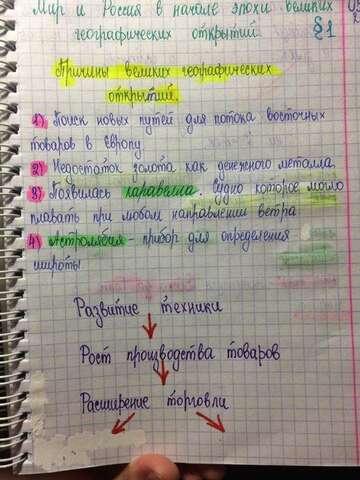 Мир и Россия в начале эпохи великих
географических открытий. §1
Причины великих географических
открытий.
1) Поиск новых путей для потока восточных
товаров в Европу
2) Недостаток золота как денежного металла.
3) Появилась каравелла. Судно которое могло
плавать при любом направлении ветра
4) Астролябия - прибор для определения
широты
Развитие техники
Рост производства товаров
Расширение торговли